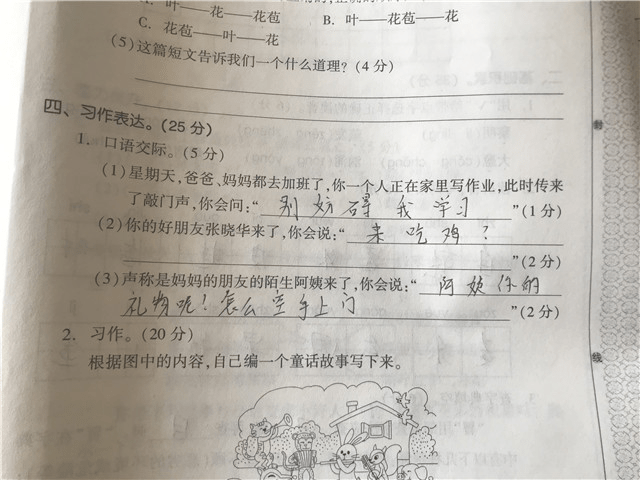 A. 叶——花——花苞 B. 叶——花苞——花
C. 花苞——叶——花
(5)这篇短文告诉我们一个什么道理?(4分)
四、习作表达。(25分)
1. 口语交际。(5分)
(1)星期天,爸爸、妈妈都去加班了,你一个人正在家里写作业,此时传来
了敲门声,你会问:“别妨碍我学习”(1分)
(2)你的好朋友张晓华来了,你会说:“来吃鸡?
”(2分)
(3)声称是妈妈的朋友的陌生阿姨来了,你会说:“阿姨你的
礼物呢!怎么空手上门”(2分)
2. 习作。(20分)
根据图中的内容,自己编一个童话故事写下来。
线